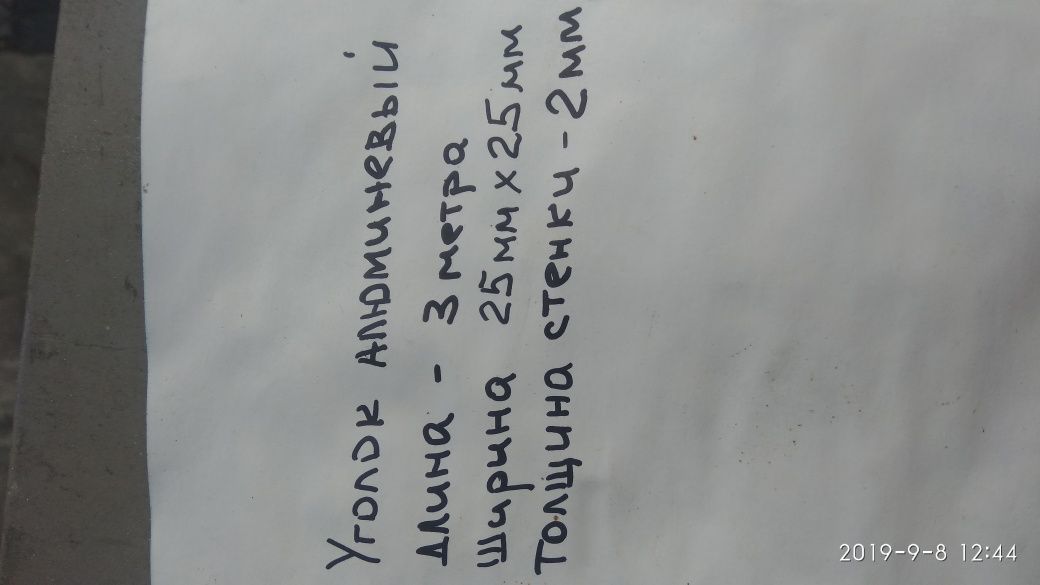 Уголок алюминевый
Длина - 3 метра
Ширина 25мм х 25мм
Толщина стенки - 2мм
2019-9-8 12:44